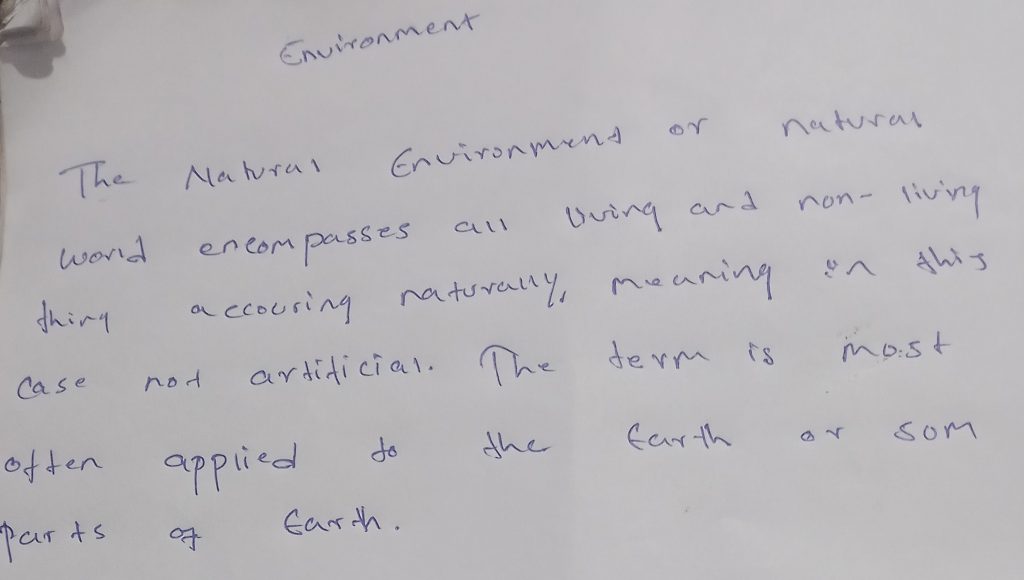 Environment
The Natural Environment or natural
world encompasses all living and non-living
thing accouring naturally, meaning in this
case not artificial. The term is most
often applied to the Earth or som
parts of Earth.